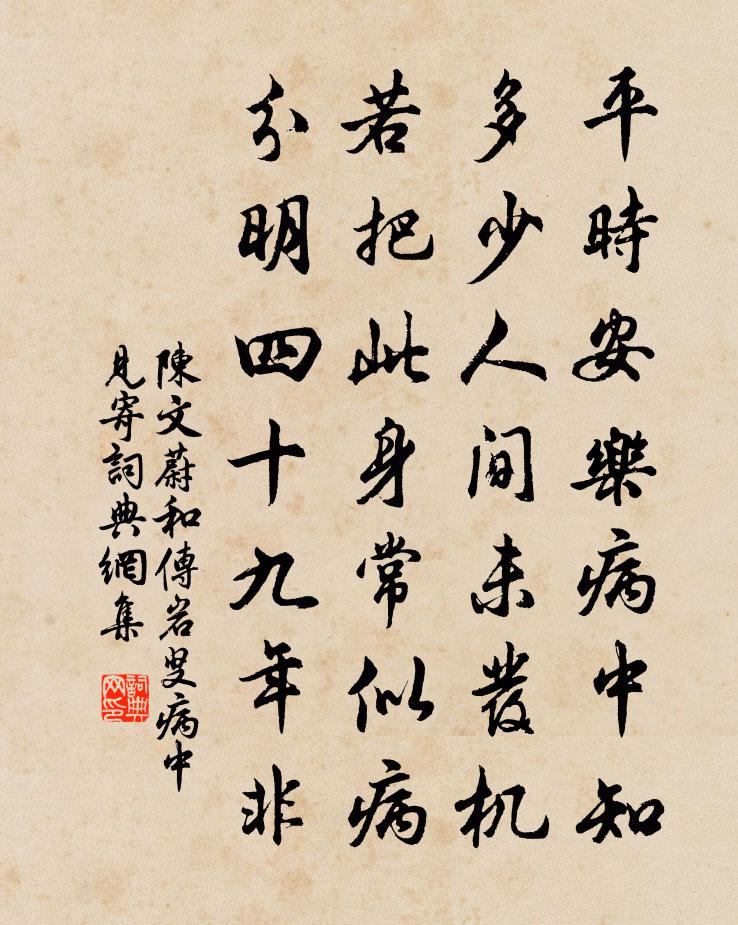 平時安樂病中知
多少人間未發机
若把此身常似病
分明四十九年非
陳文蔚和傅岩叟病中
見寄詞典網集
詞典
网印